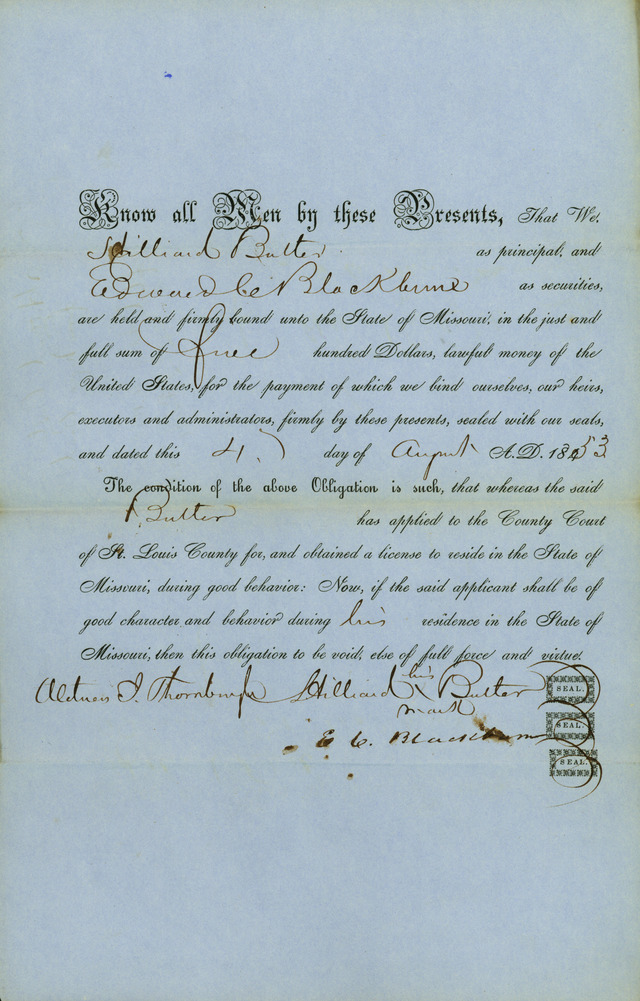 Know all Men by these Presents, That We.
Hilliard Butler as principal, and
Edward C Blackburne as securities,
are held and firmly bound unto the State of Missouri, in the just and
full sum of hundred Dollars, lawful money of the
United States, for the payment of which we bind ourselves, our heirs,
executors and administrators, firmly by these presents, sealed with our seals,
and dated this 4. day of August A. D. 1853
The condition of the above Obligation is such, that whereas the said
Butler has applied to the County Court
of St. Louis County for, and obtained a license to reside in the State of
Missouri, during good behavior: Now, if the said applicant shall be of
good character and behavior during his residence in the State of
Missouri, then this obligation to be void, else of full force and virtue.
his
Thornburgh Hilliard X Butler SEAL.
mark
E C. Blackburn SEAL.
SEAL.